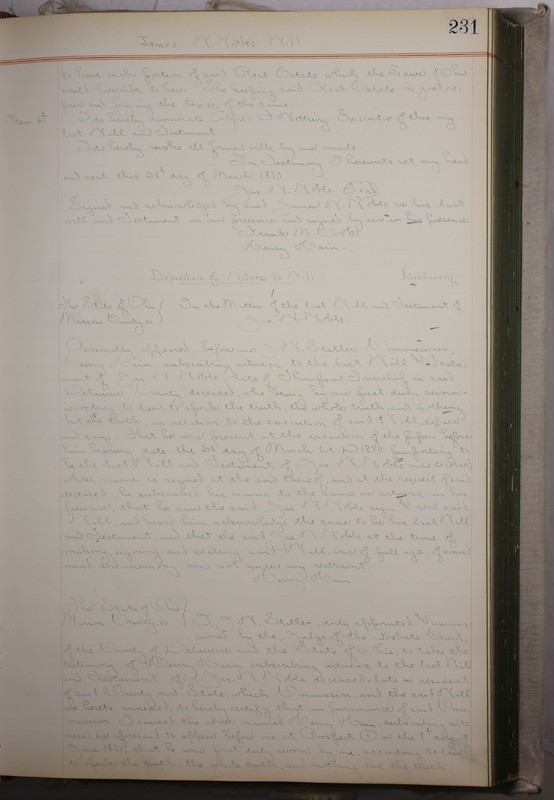 231
James N. Noble Will
to have such portion of said Real Estate which the Laws of Ohio
would to her. She keeping said Real Estate in good re
pair and paying the taxes of the same.
Item 6th I do hereby nominate Executor of this my
last Will and Testament
I do hereby revoke all former wills by me made
In Testimony I hereunto set my hand
and seal this 28th day of March 1870.
Jas. N. Noble (Seal)
Signed and acknowledged by said James N. Noble as his last
will and Testament in our presence and signed by us in his presence
Frank M.
Henry Hain.
Deposition of Witness to Will
The State of Ohio
Marion County ss } In the Matter of the last Will and Testament of
Jas. N. Noble
Personally appeared before me J. N. Stetler Commissioner,
Henry Hain subscribing witness to the last Will & Testa-
ment of Jas. N. Noble late of Thompson Township in said
Delaware County, deceased, who being by me first duly sworn
according to law to speak the truth, the whole truth, and nothing
but the truth, in relation to the execution of said Will, deposes
and says: That he was present at the execution of the paper before
him bearing date the 28 day of March A. D. 1870 purporting to
be the last Will and Testament of Jas. N. Noble now deceased
whose name is signed at the end thereof, and at the request of said
deceased he subscribed his name to the same as witness in his
presence, that he saw the said Jas. N. Noble sign & seal said
Will, and heard him acknowledge the same to be his last Will
and Testament, and that the said Jas. N. Noble at the time of
making, signing and sealing said Will, was of full age, of sound
mind and memory and not under any restraint
Henry Hain
The State of Ohio
Marion County ss } I, J. N. Stetler, duly appointed Commis
sioner by the Judge of the Probate Court,
of the County of Delaware and the State of Ohio, to take the
testimony of Henry Hain subscribing witness to the last Will
and Testament of Jas. N. Noble deceased, late a resident
of said County and State, which Commission and the said Will
is hereto annexed, do hereby certify that in pursuance of said Com
mission I caused the above named Henry Hain subscribing wit
ness as aforesaid to appear before me at Prospect O. on the 7th day of
June 1871, that he was first duly sworn by me, according to law
to speak the truth, the whole truth, and nothing but the truth